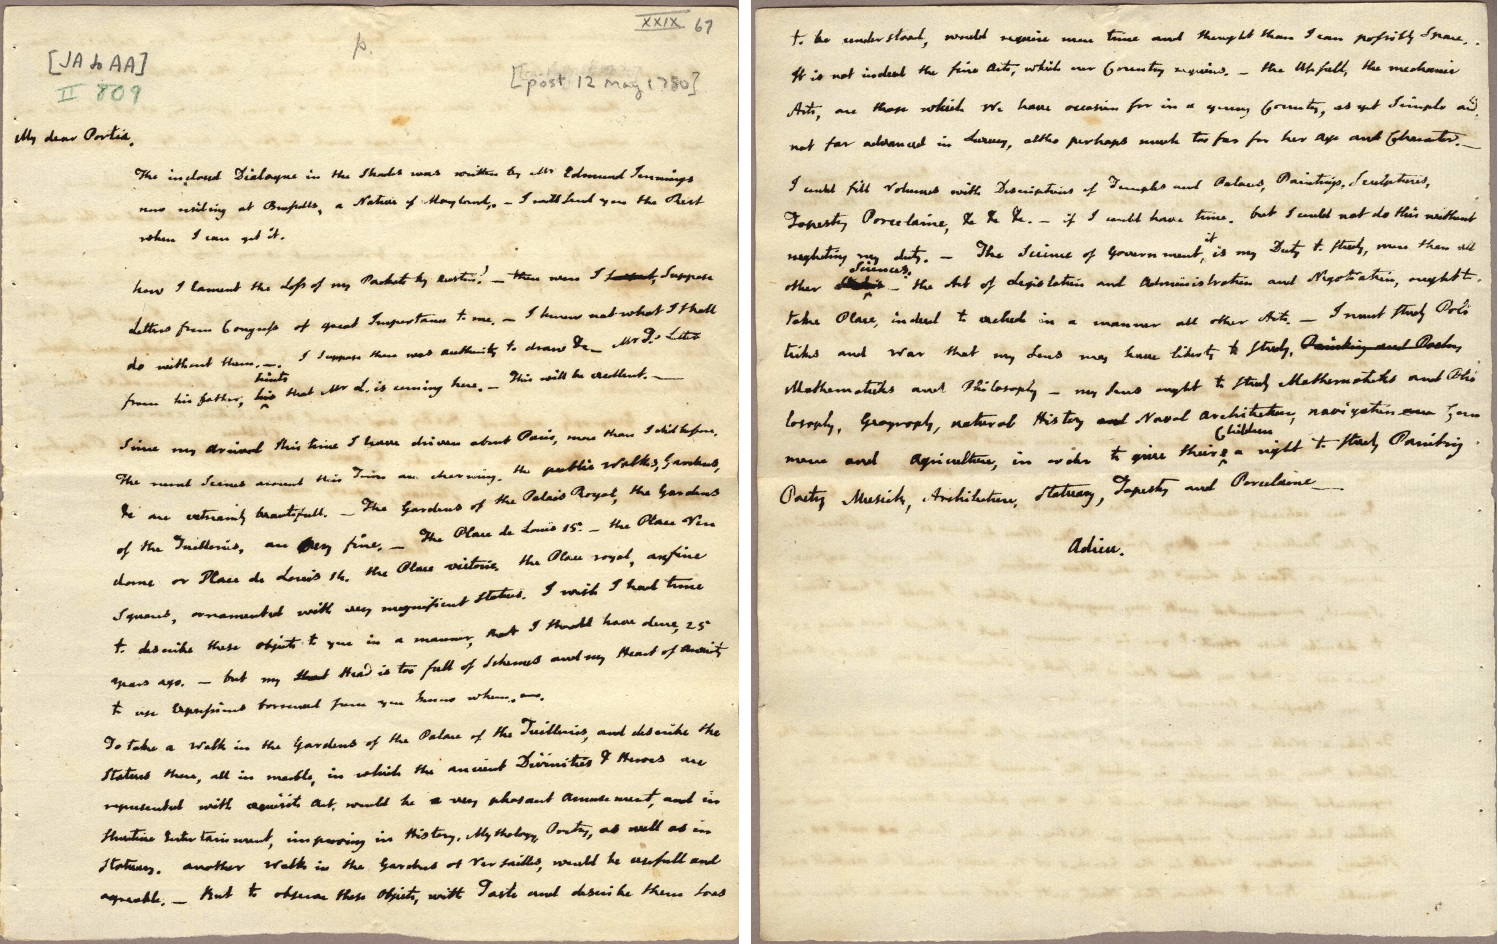 XXIX 67
p.
[JA to AA]
II 809
[post 12 May 1780]
My dear Portia,
The inclosed Dialogue in the Shades was written by Mr Edmund Jennings
now residing at Brussells, a Native of Maryland. — I will send you the Rest
when I can get it.
how I lament the Loss of my Packets by Austin! — there were I Suppose
Letters from Congress of great Importance to me. — I know not what I shall
do without them. — I suppose there was authority to draw &c. — Mr T.'s Letter
hints
from his father, that Mr L. is coming here. — This will be excellent. —
Since my arrival this time I have driven about Paris, more than I did before.
The rural Scenes around this Town are charming. the public Walks, Gardens,
&c are extreamly beautifull. — The Gardens of the Palais Royal, the Gardens
of the Tuilleries, are very fine. — The Place de Louis 15. — the Place Ven
dome or Place de Louis 14. the Place victoire, the Place royal, are fine
Squares, ornamented with very magnificent Statues. I wish I had time
to describe these objects to you in a manner, that I should have done, 25
years ago. — but my Head is too full of Schemes and my Heart of Anxiety
to use Expressions borrowed from you know whom. —
To take a Walk in the Gardens of the Palace of the Tuilleries, and describe the
Statues there, all in marble, in which the ancient Divinities & Heroes are
represented with exquisite Art, would be a very pleasant Amusement, and in
structive Entertainment, improving in History, Mythology, Poetry, as well as in
Statuary. another Walk in the Gardens of Versailles, would be usefull and
agreable. — But to observe these Objects, with Taste and describe them so as
to be understood, would require more time and thought than I can possibly Spare.
It is not indeed the fine Arts, which our Country requires. — the Usefull, the mechanic
Arts, are those which We have occasion for in a young Country, as yet Simple and
not far advanced in Luxury, altho perhaps much too far for her Age and Character. —
I could fill Volumes with Descriptions of Temples and Palaces, Paintings, Sculptures,
Tapestry Porcelaine, &c &c &c. — if I could have time. but I could not do this without
it
neglecting my duty. — The Science of Government is my Duty to Study, more than all
Sciences.
other — the Art of Legislation and Administration and Negotiation, ought to
take Place, indeed to exclude in a manner all other Arts. — I must study Poli
ticks and War that my sons may have liberty to study, Painting and Poetry
Mathematicks and Philosophy — my sons ought to study Mathematicks and Phi
losophy, Geography, natural History and Naval Architecture, navigation and Com
Children
merce and Agriculture, in order to give their a right to study Painting
Poetry Musick, Architecture, Statuary, Tapestry and Porcelaine —
Adieu.